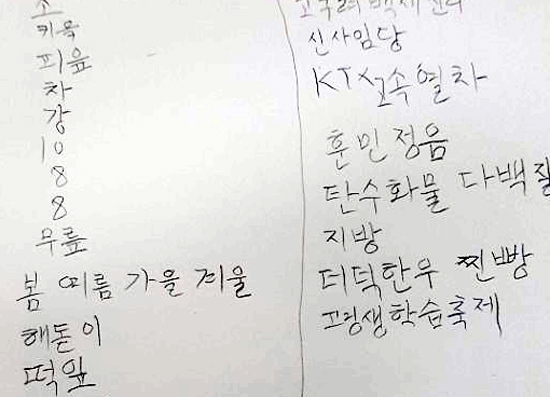 소
키읔
피읖
차
강
10
8
8
무릎
봄 여름 가을 겨울
해돋이
떡잎
고구려 백제 신라
신사임당
KTX 고속열차
훈민정음
탄수화물 다백질
지방
더덕한우 찐빵
평생학습축제